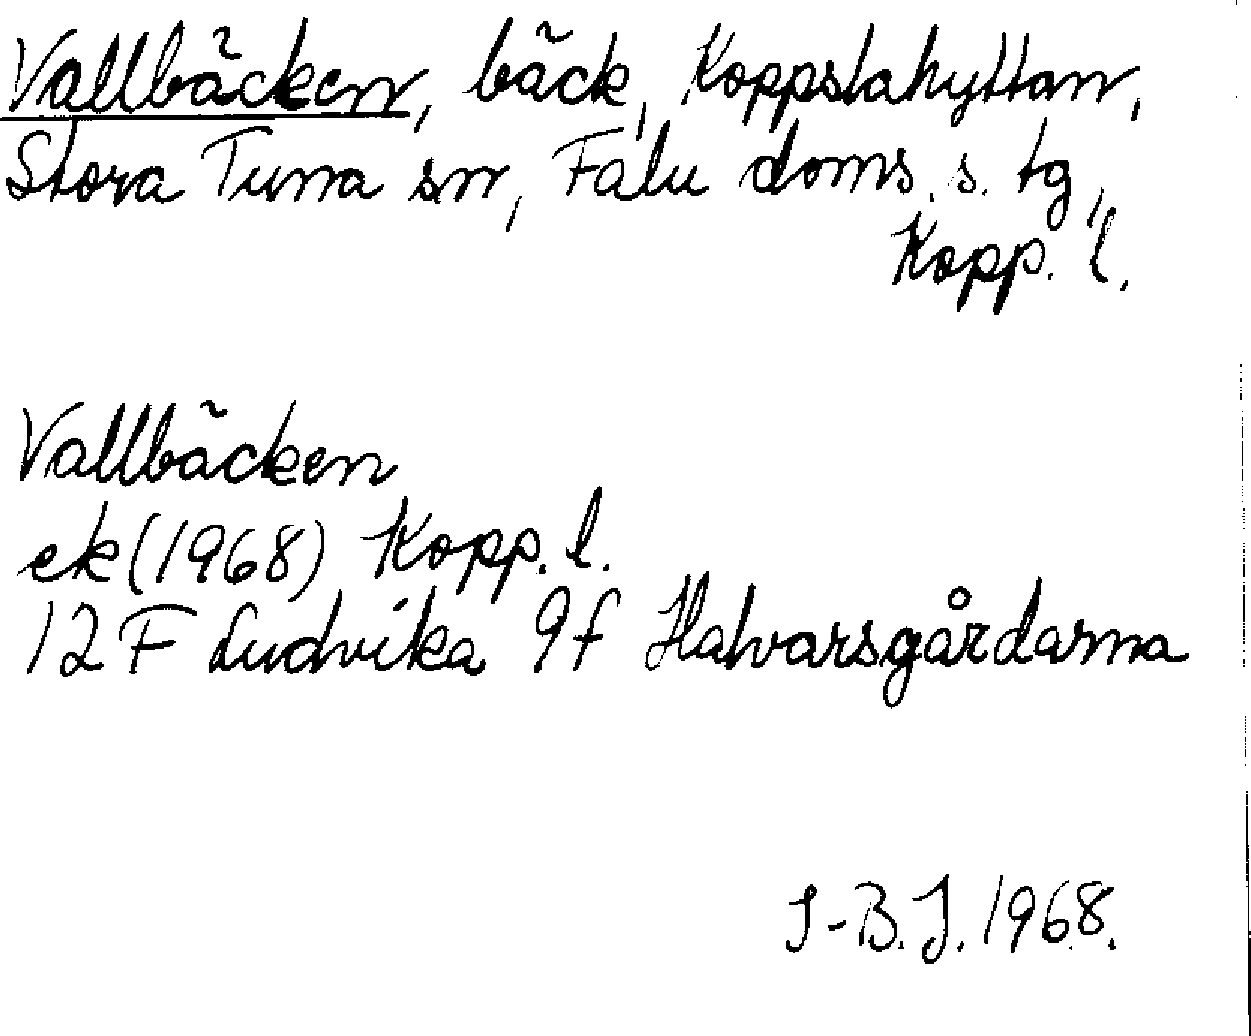 Vallbäcken, bäck, Koppslahyttan,
Stora Tuna sn, Falu doms. s. tg,
Kopp. l.
Vallbäcken
ek (1968) Kopp. l.
12 F Ludvika 9f Halvarsgårdarna
I-B.J. 1968.